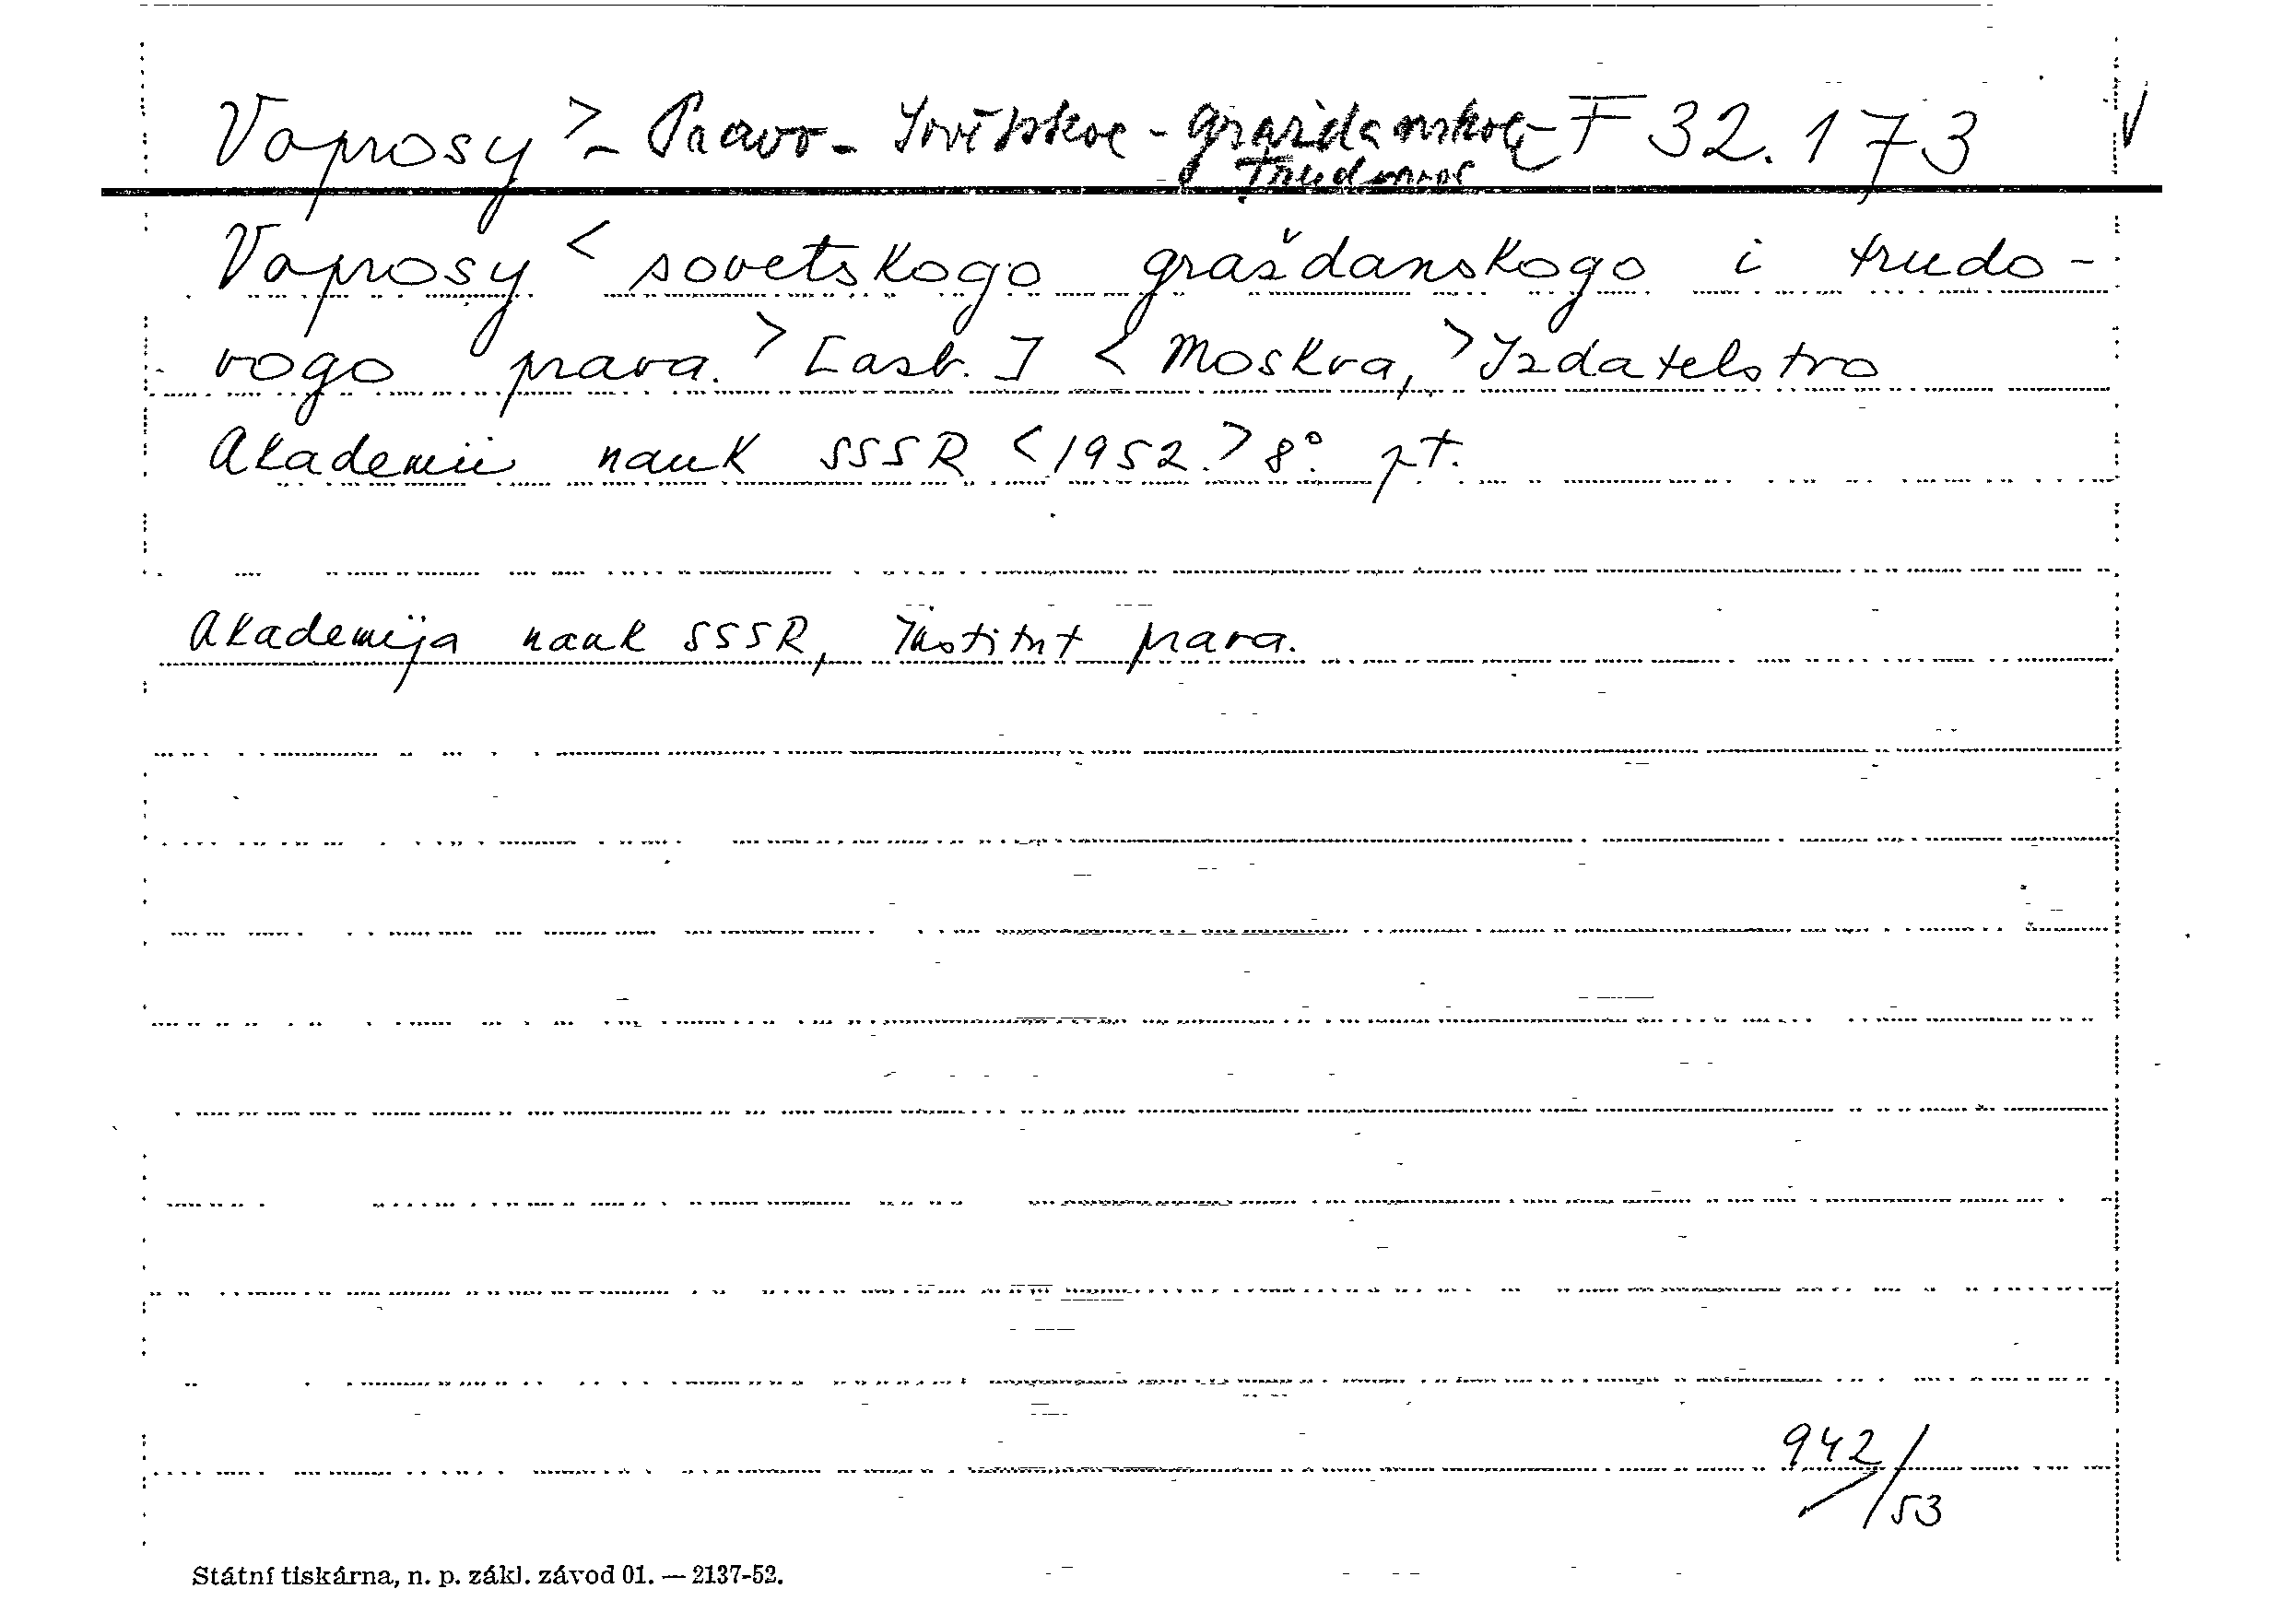 Voprosy > - Pravo - Sovětskoe - graždanskoe - F 32.173 V
Trudovoe
Voprosy < sovetskogo graždanskogo i trudo-
vogo prava. > [asb.] < Moskva, > Izdatelstvo
Akademii nauk SSSR < 1952. > 8°. pt.
Akademija nauk SSSR, Institut prava.
942/53
Státní tiskárna, n. p. zákl. závod 01. — 2137-52.